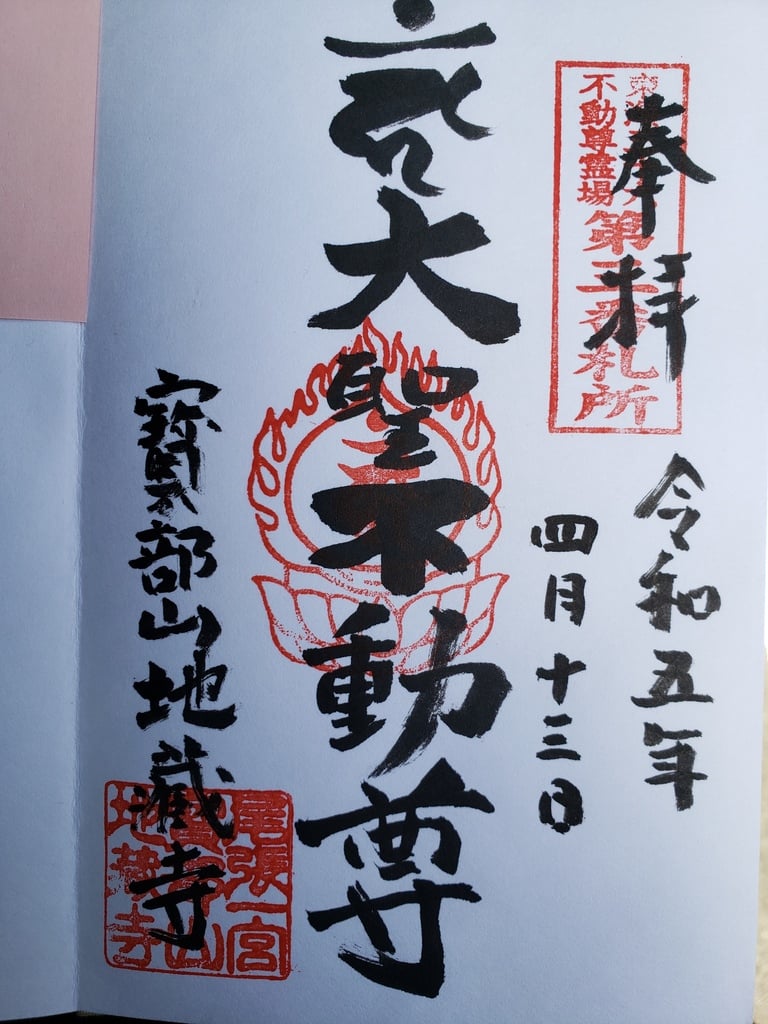 奉拝
東海三十六
不動尊霊場
第三番札所
令和五年
四月十三日
大聖不動尊
寶部山地蔵寺
尾張一宮
寶部山
地蔵寺